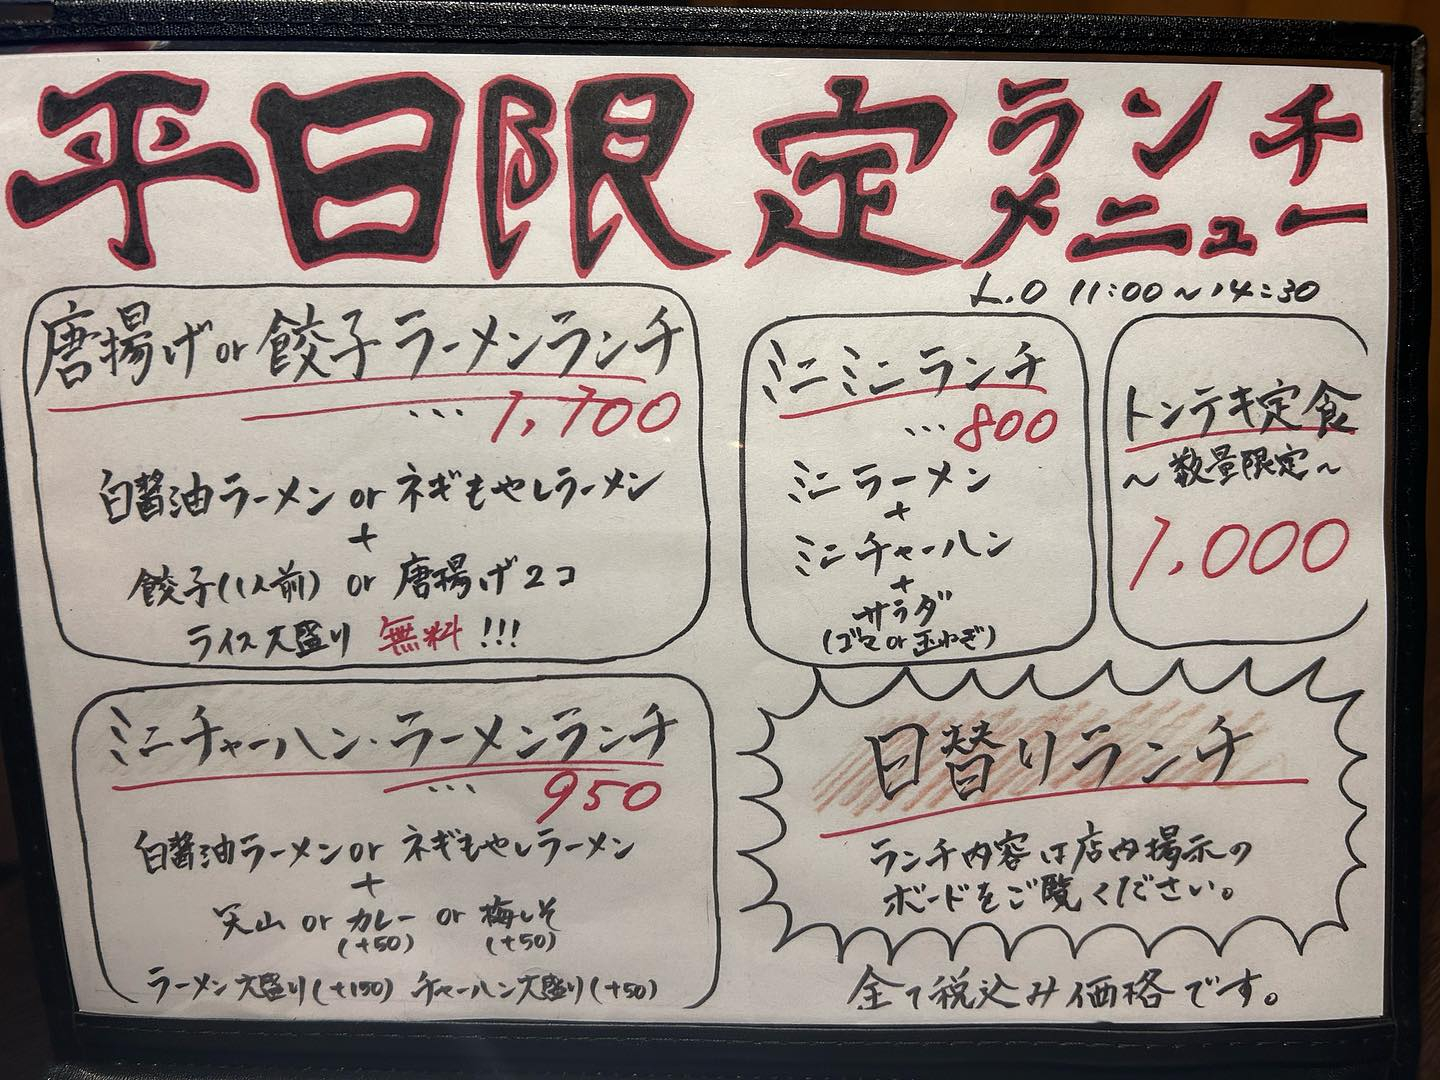 平日限定ランチ
メニュー
L.O 11:00~14:30
唐揚げor餃子ラーメンランチ
…1,100
白醤油ラーメン or ネギもやしラーメン
+
餃子(1人前) or 唐揚げ2コ
ライス大盛り 無料!!!
ミニミニランチ
…800
ミニラーメン
+
ミニチャーハン
+
サラダ
(ゴマor玉ねぎ)
トンテキ定食
~数量限定~
1,000
ミニチャーハン・ラーメンランチ
…950
白醤油ラーメンor ネギもやしラーメン
+
天山 or カレー or 梅しそ
(+50) (+50)
ラーメン大盛り(+150) チャーハン大盛り(+50)
日替りランチ
ランチ内容は店内掲示の
ボードをご覧ください。
全て税込み価格です。